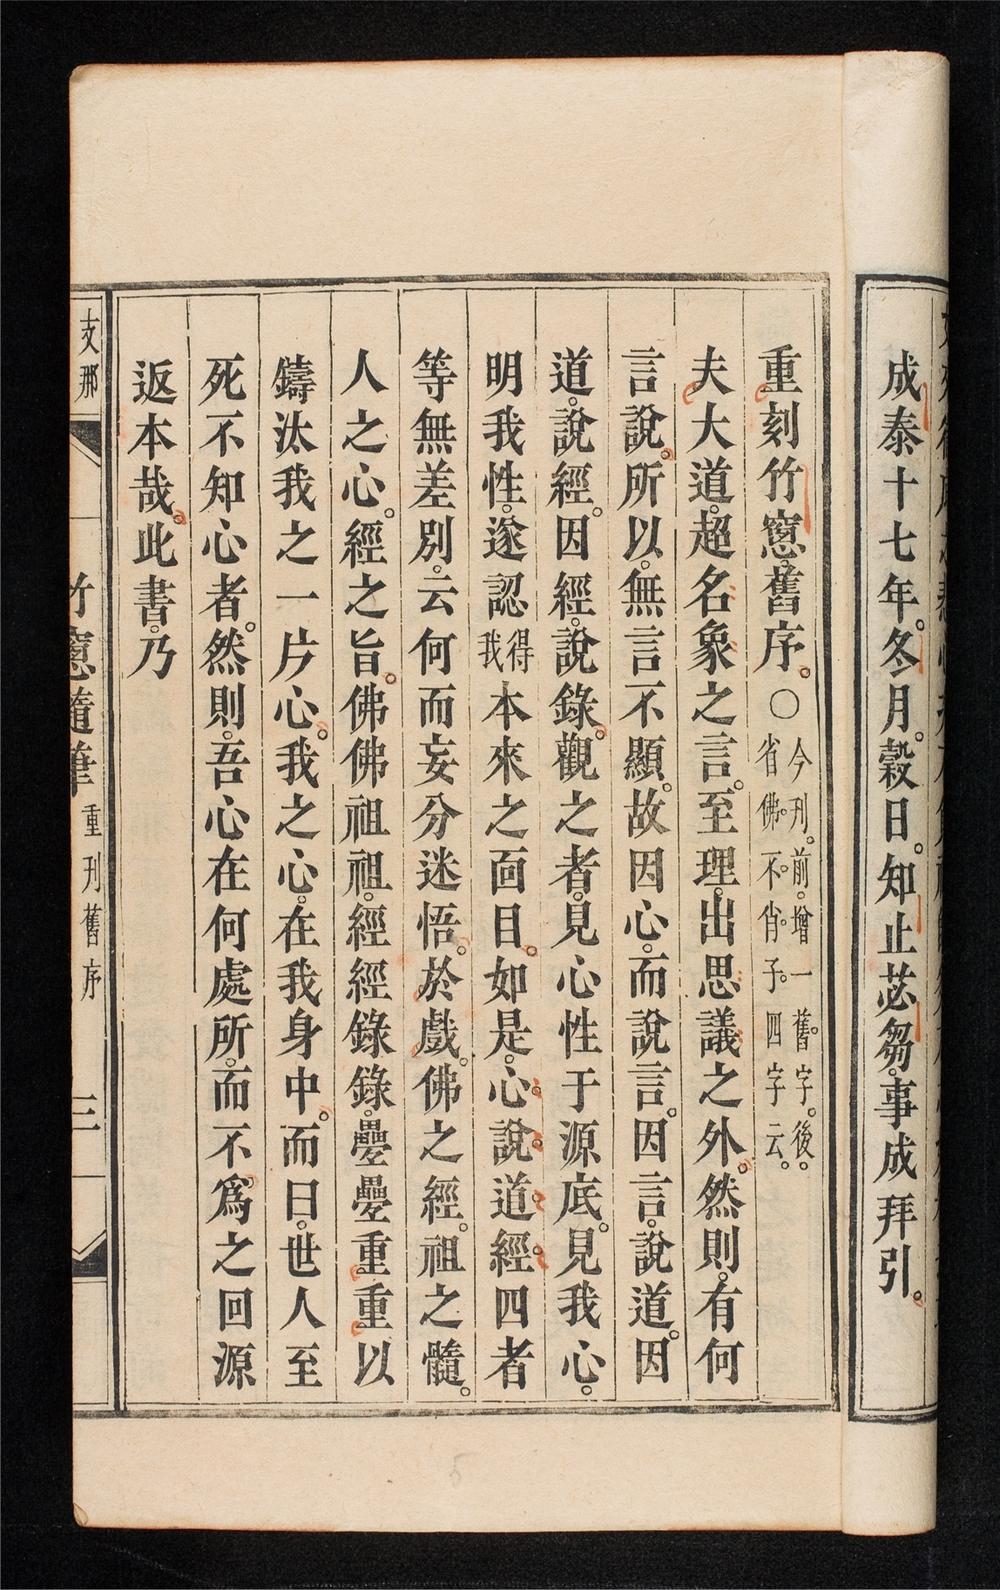 成泰十七年。冬月。穀日。知止苾芻。事成拜引。
重刻竹窻舊序。○今刋。前。增一舊。字。後。省佛。不肖。子。四字云。
夫大道。超名象之言。至理。出思議之外。然則。有何
言說。所以。無言不顯。故因心。而說言。因言。說道。因
道。說經。因經。說錄。觀之者。見心性于源底。見我心。
明我性。遂認得我本來之面目。如是。心。說。道。經。四者
等無差別。云何而妄分迷悟。於戲。佛之經。祖之髓。
人之心。經之旨。佛佛祖祖。經經錄錄。疊疊重重以
鑄汰我之一片心。我之心。在我身中。而曰。世人至
死不知心者。然則。吾心在何處所。而不爲之回源
返本哉。此書。乃
支那
竹窻隨筆
重刋舊序
三